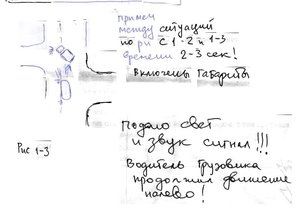 примем
между ситуаций
по рис 1-2 и 1-3
времени 2-3 сек!
Включены Габариты
Подало свет
и звук сигнал!!!
Водитель Грузовика
продолжил движение
налево!
Рис 1-3